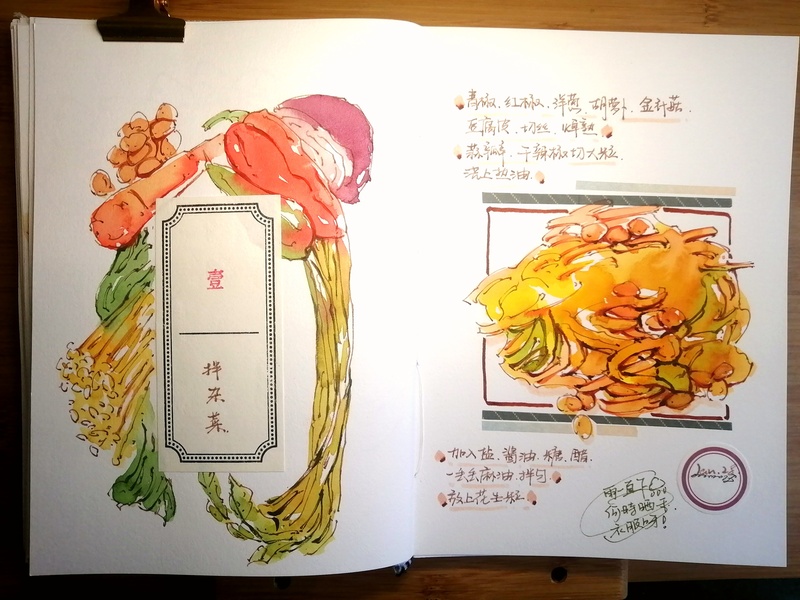 壹
拌杂菜
青椒、红椒、洋葱、胡萝卜、金针菇、
豆腐皮、切丝、焯熟
蒜瓣、干辣椒切大粒、
浇上热油、
加入盐、酱油、糖、醋、
一丢丢麻油、拌匀
放上花生粒
雨一直下
何时晒干
衣服呀!